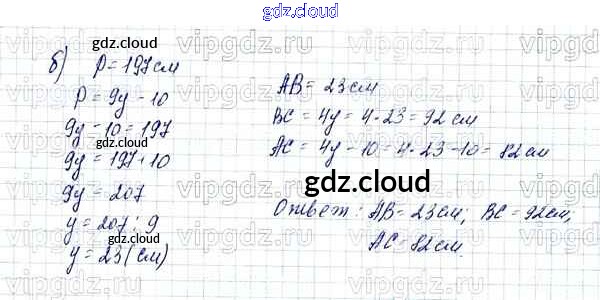 gdz.cloud
б) P = 197 см
gdz.cloud
P = 9y − 10
9y − 10 = 197
9y = 197 + 10
9y = 207
y = 207 : 9
y = 23 (см)
gdz.cloud
AB = 23 см
BC = 4y = 4·23 = 92 см
AC = 4y − 10 = 4·23 − 10 = 82 см
gdz.cloud
Ответ: AB = 23 см; BC = 92 см;
AC = 82 см.
gdz.cloud
vipgdz.ru